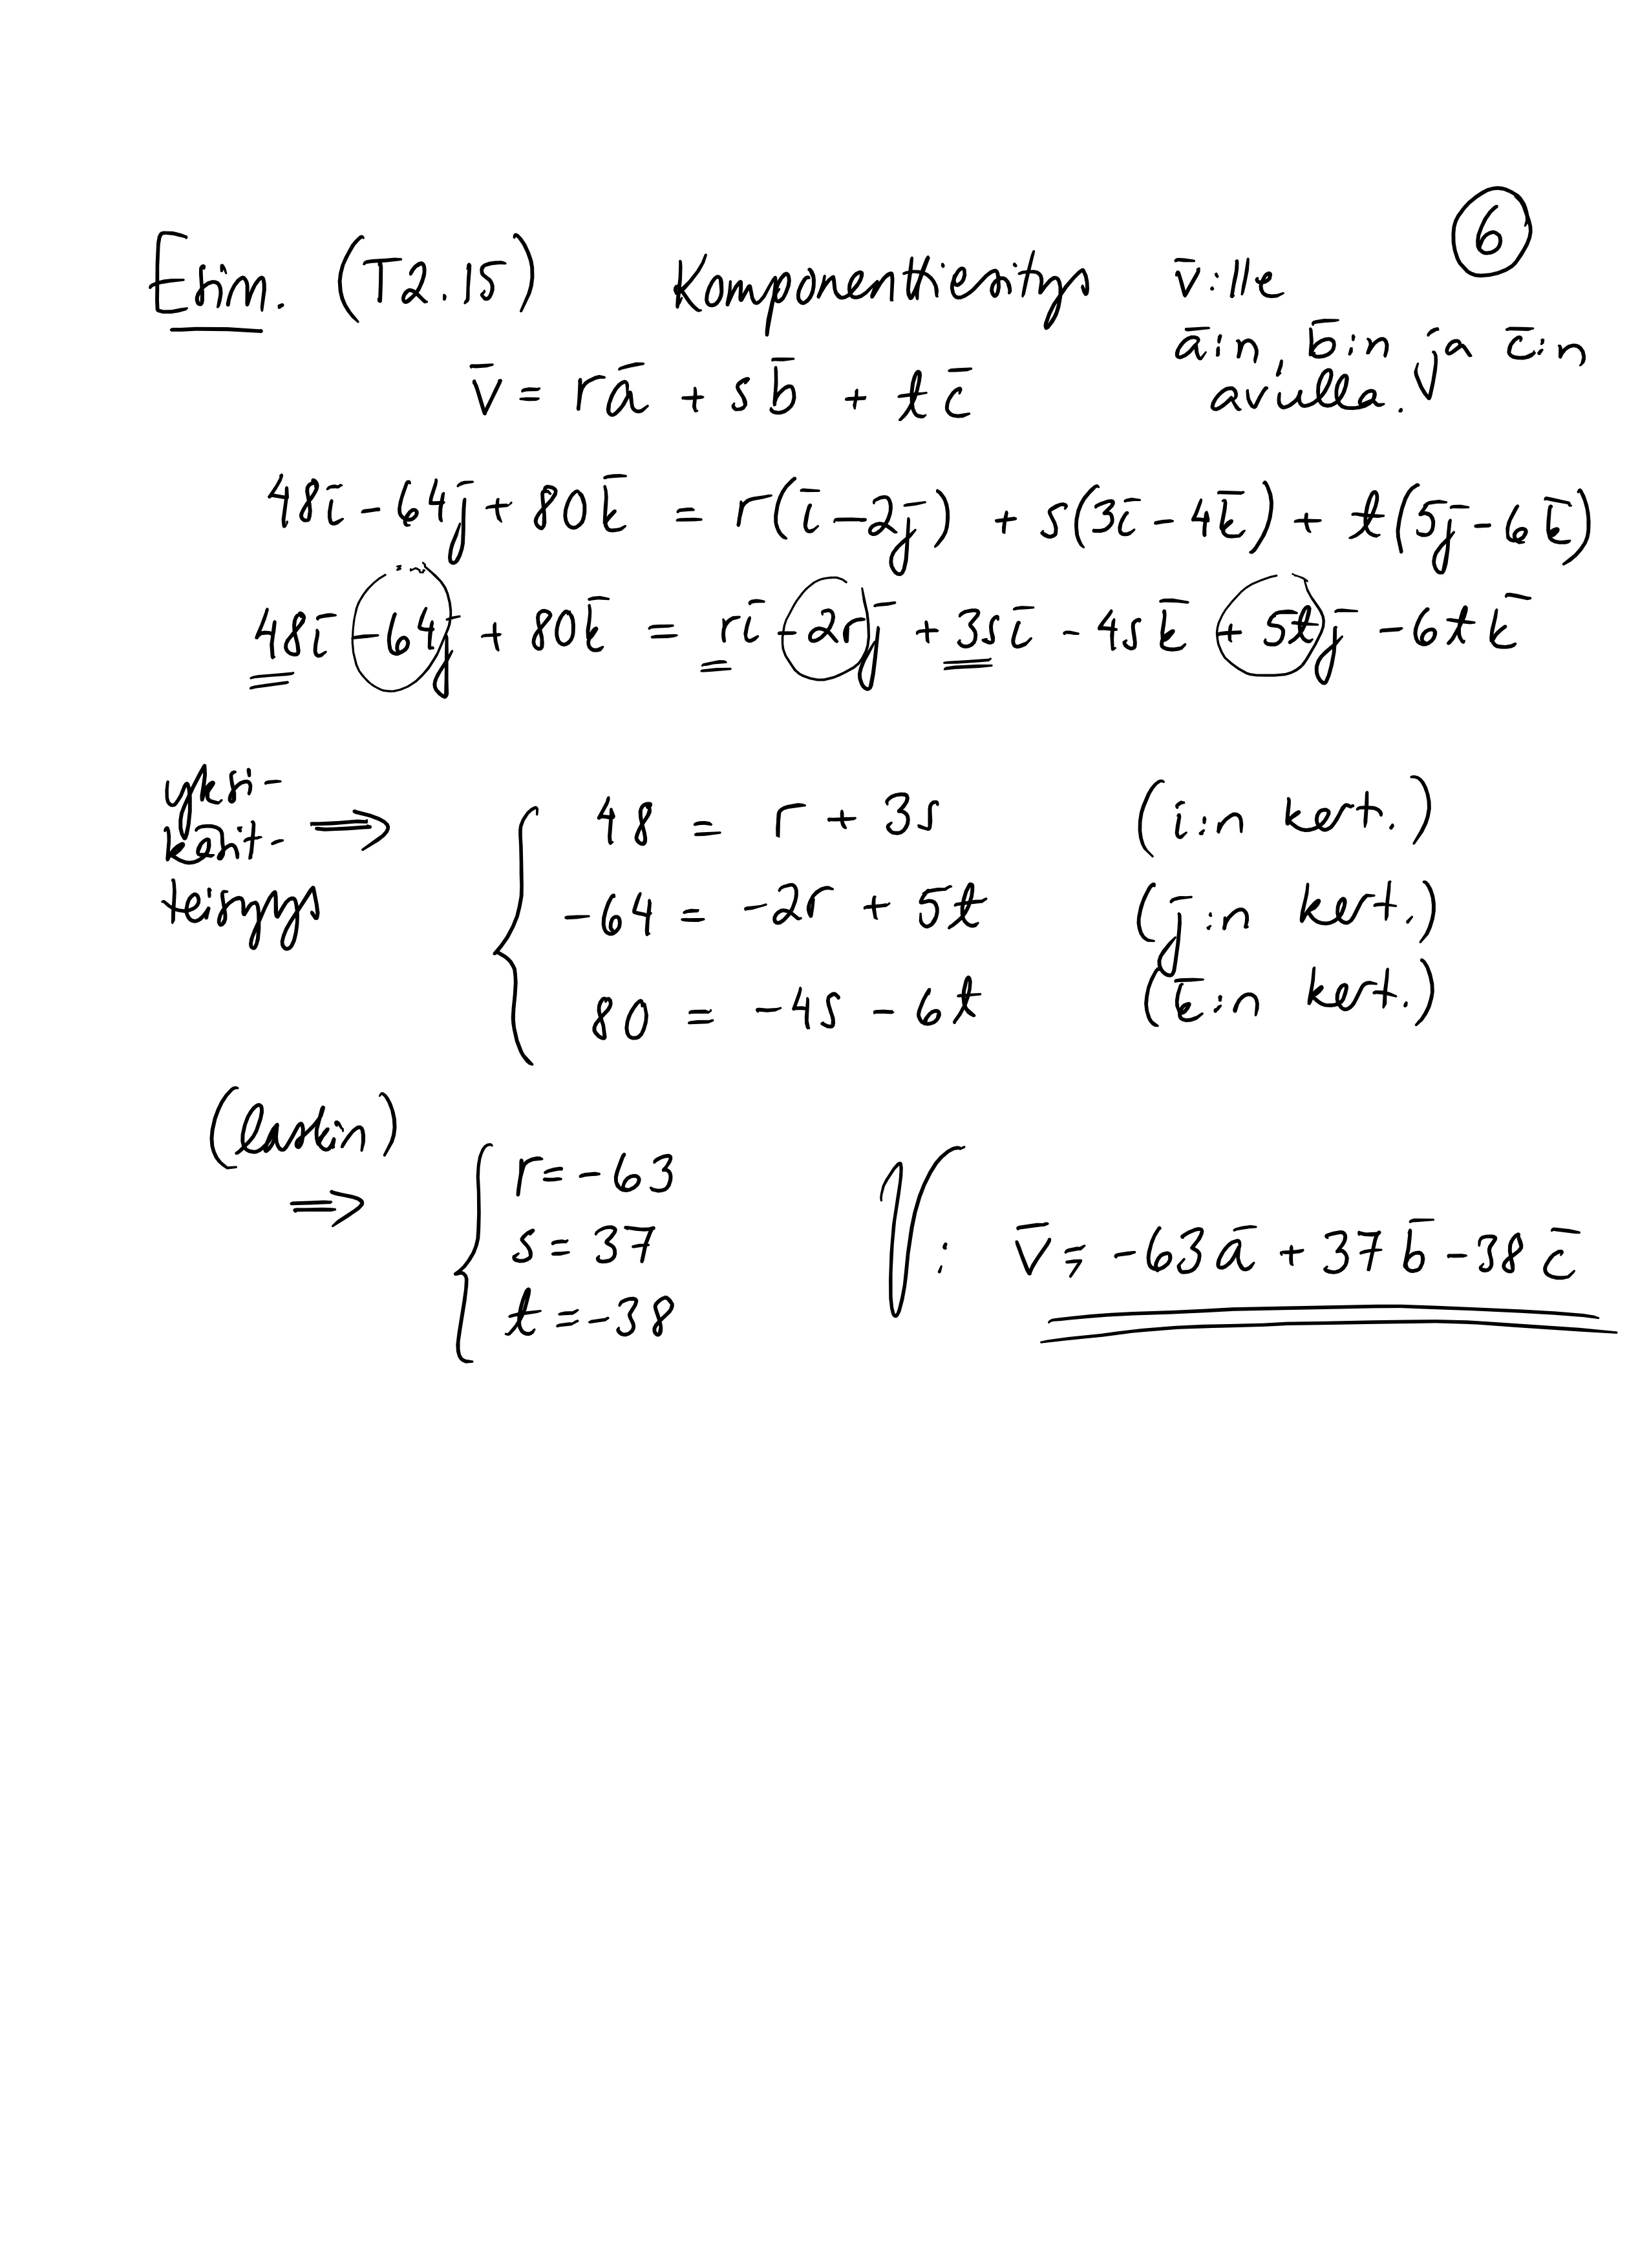 6
Esim. (T2.15) Komponenttiesitys v̄:lle
ā:n, b̄:n ja c̄:n
avulla.
v̄ = rā + sb̄ + tc̄
48ī - 64j̄ + 80k̄ = r(ī - 2j̄) + s(3ī - 4k̄) + t(5j̄ - 6k̄)
48ī - 64j̄ + 80k̄ = rī - 2rj̄ + 3sī - 4sk̄ + 5tj̄ - 6tk̄
yksi-
käsit-
teisyys
⇒
48 = r + 3s (ī:n kert.)
-64 = -2r + 5t (j̄:n kert.)
80 = -4s - 6t (k̄:n kert.)
(laskin)
⇒
r = -63
s = 37
t = -38
V: v̄ = -63ā + 37b̄ - 38c̄